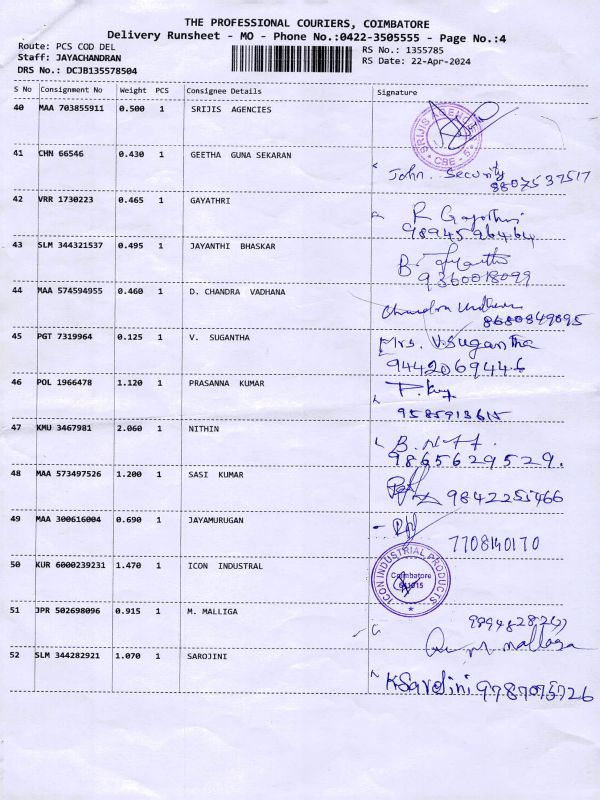 THE PROFESSIONAL COURIERS, COIMBATORE
Delivery Runsheet - MO - Phone No.:0422-3505555 - Page No.:4
Route: PCS COD DEL
RS No.: 1355785
Staff: JAYACHANDRAN
RS Date: 22-Apr-2024
DRS No.: DCJB135578504
S No Consignment No Weight PCS Consignee Details Signature
40 MAA 703855911 0.500 1 SRIJIS AGENCIES
SRIJIS AGENCIES CBE - 5
41 CHN 66546 0.430 1 GEETHA GUNA SEKARAN
John. Security
8807537517
42 VRR 1730223 0.465 1 GAYATHRI
R Gayathri
9894596464
43 SLM 344321537 0.495 1 JAYANTHI BHASKAR
B. Jayanthi
9360018099
44 MAA 574594955 0.460 1 D. CHANDRA VADHANA
Chandra
8680849095
45 PGT 7319964 0.125 1 V. SUGANTHA
Mrs. V. Sugantha
9442069446
46 POL 1966478 1.120 1 PRASANNA KUMAR
9585913615
47 KMU 3467981 2.060 1 NITHIN
9865629529.
48 MAA 573497526 1.200 1 SASI KUMAR
9842255466
49 MAA 300616004 0.690 1 JAYAMURUGAN
7708140170
50 KUR 6000239231 1.470 1 ICON INDUSTRAL
ICON INDUSTRIAL PRODUCTS
Coimbatore
51 JPR 502698096 0.915 1 M. MALLIGA
mallaga
52 SLM 344282921 1.070 1 SAROJINI
K Sarojini 9787075726